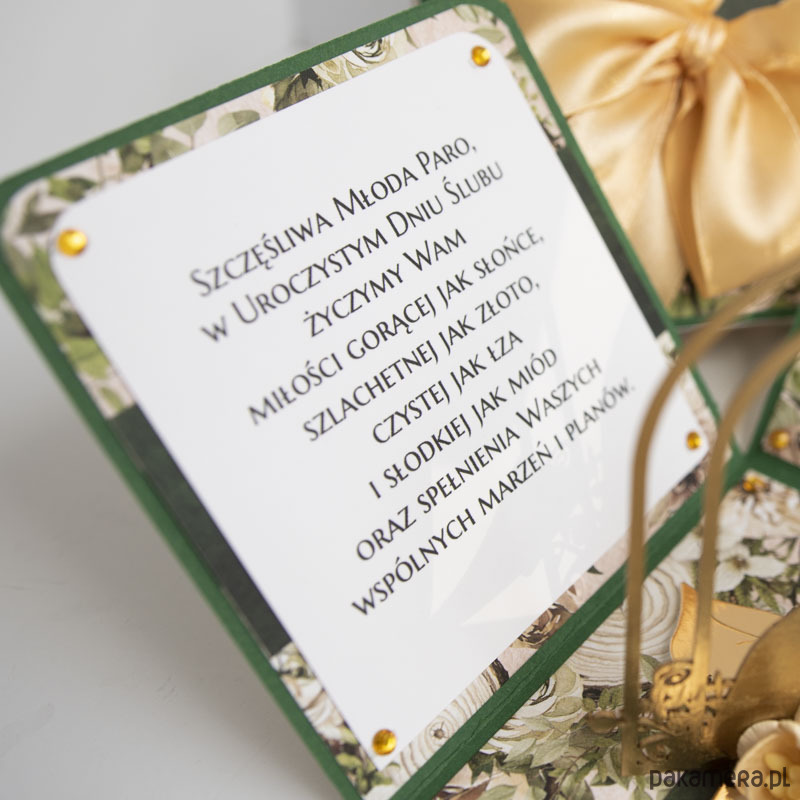 Szczęśliwa Młoda Paro,
w Uroczystym Dniu Ślubu
życzymy Wam
miłości gorącej jak słońce,
szlachetnej jak złoto,
czystej jak łza
i słodkiej jak miód
oraz spełnienia Waszych
wspólnych marzeń i planów.
pakamera.pl